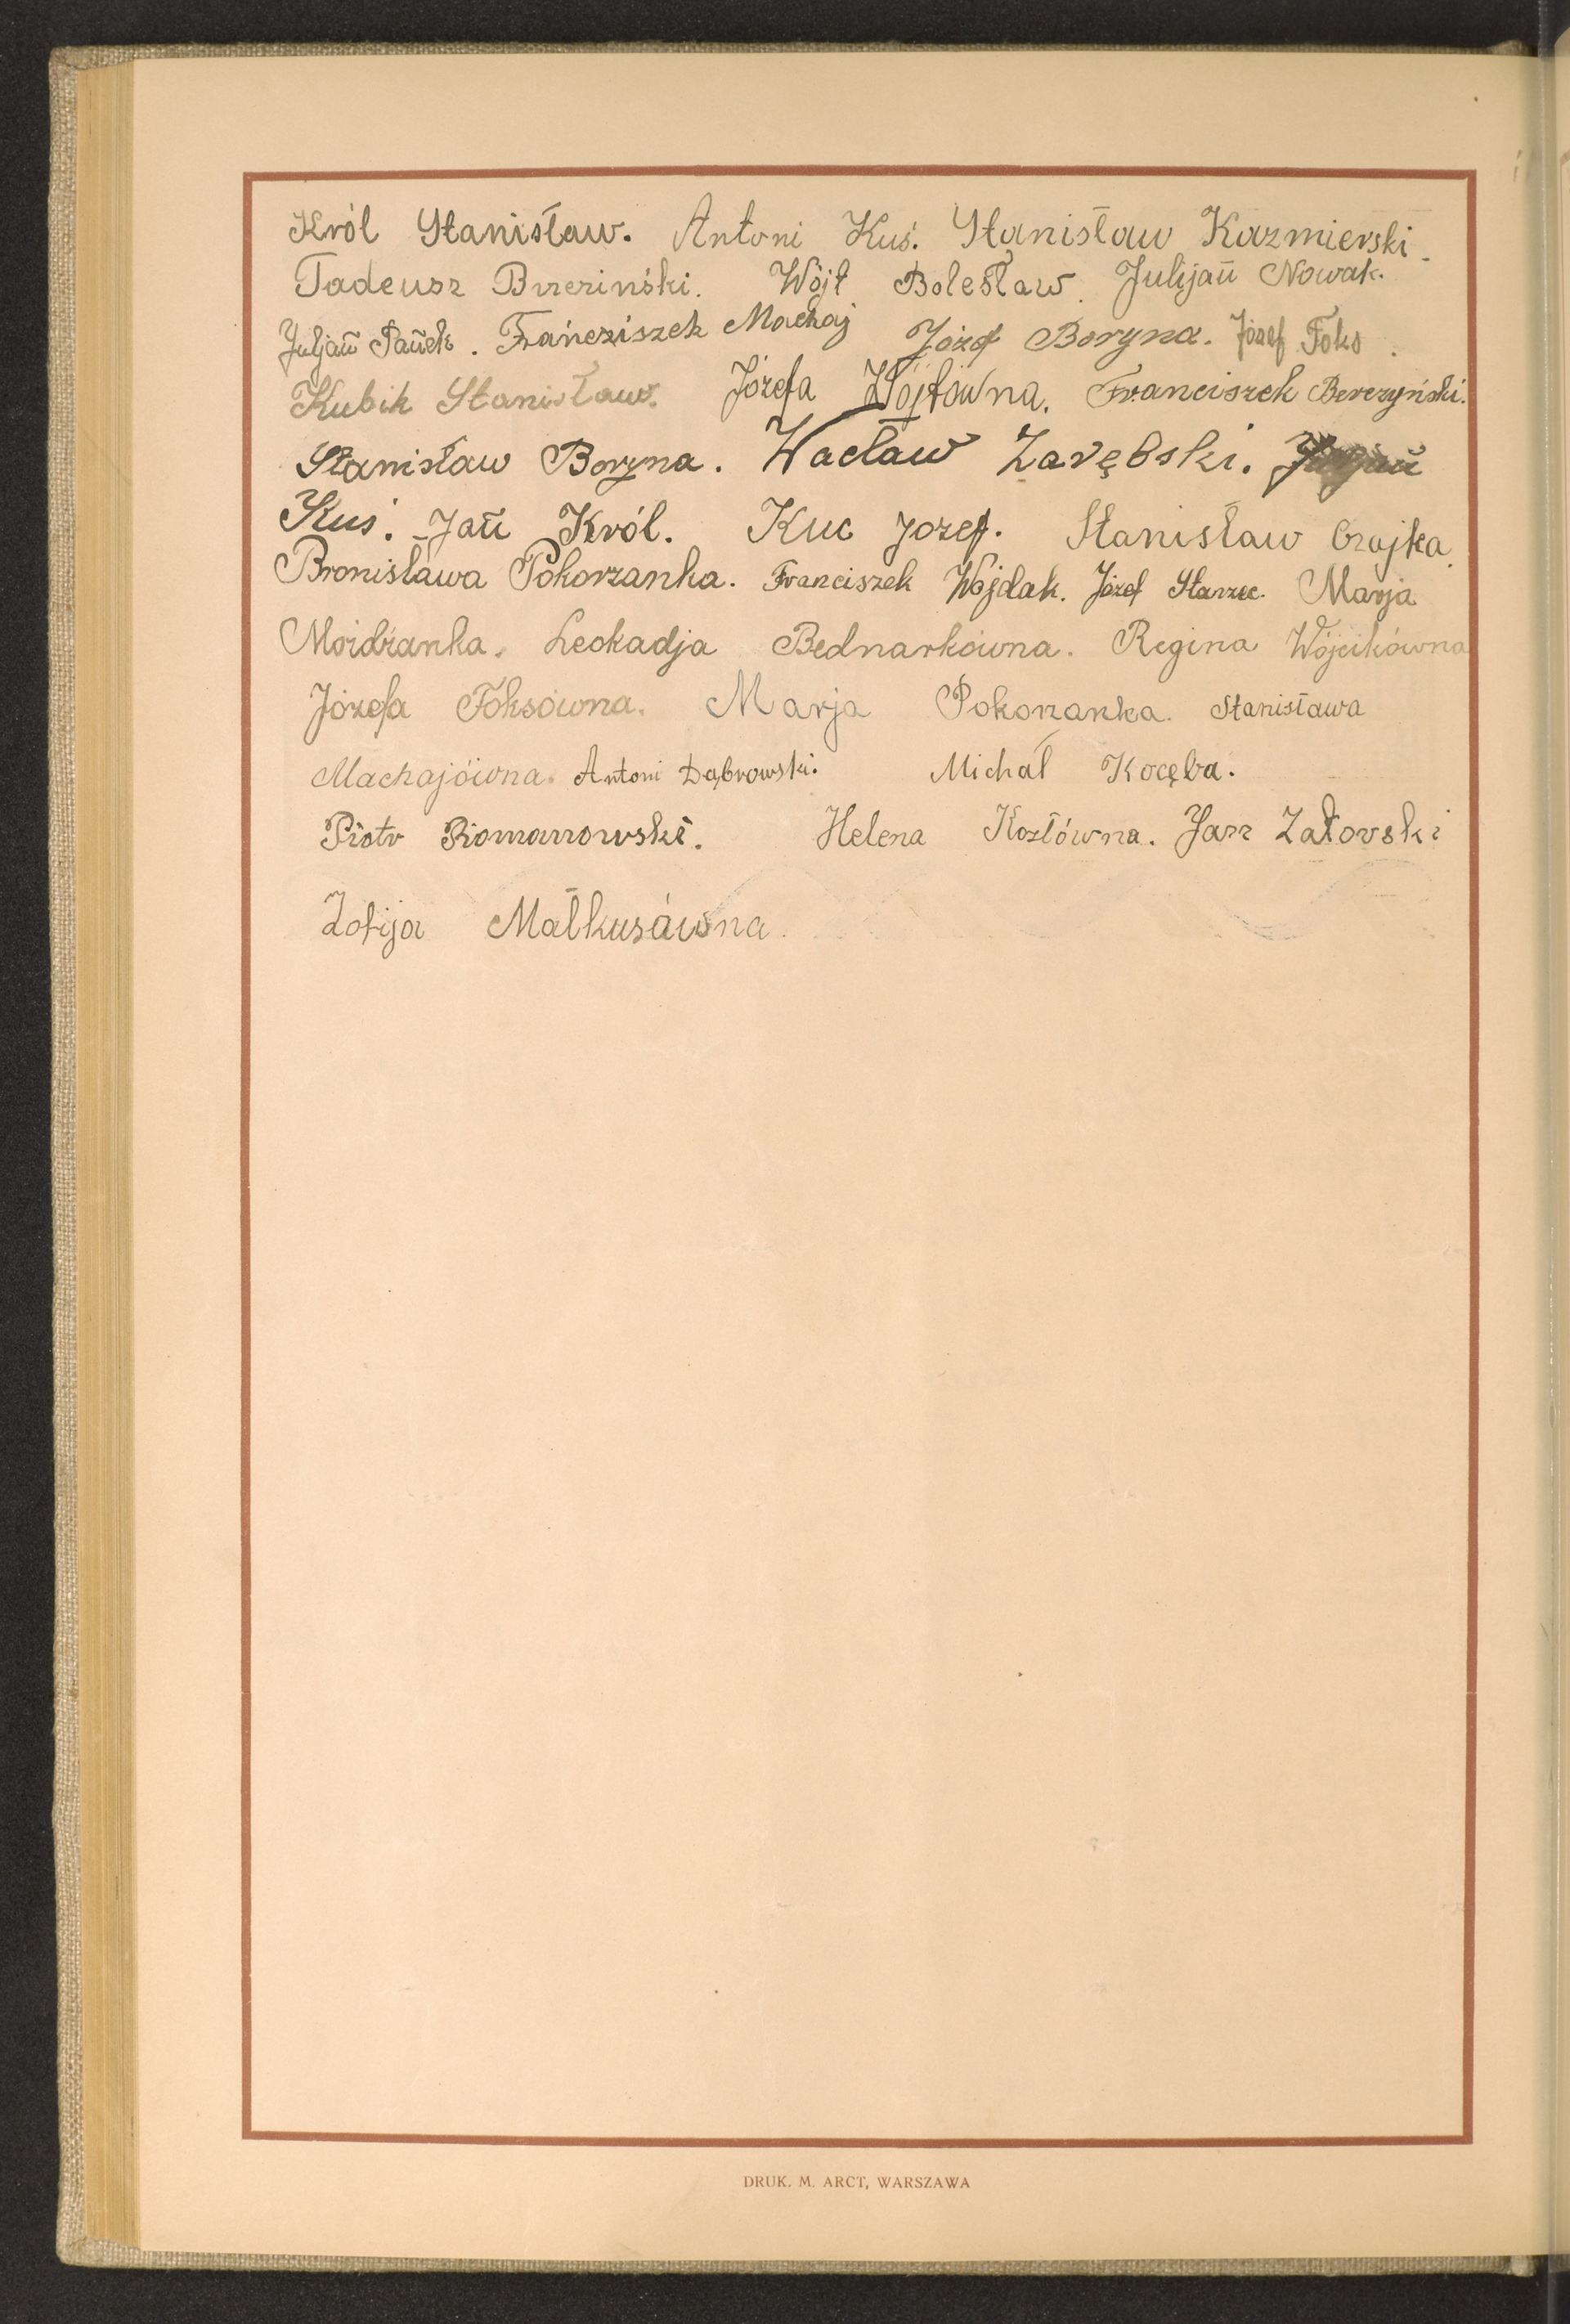 Król Stanisław. Antoni Kuś. Stanisław Kazmierski.
Tadeusz Brzeziński. Wójt Bolesław. Julijan Nowak.
Juljan Panek. Franciszek Machaj Józef Boryna. Józef Foks.
Kubik Stanisław. Józefa Wójtówna. Franciszek Berezyński.
Stanisław Boryna. Wacław Zarębski. Juljan
Kuś. Jan Król. Kuc Jozef. Stanisław Czajka.
Bronisława Pokorzanka. Franciszek Wojdak. Józef Starzec. Marja
Moździanka. Leokadja Bednarkówna. Regina Wójcikówna
Józefa Foksówna. Marja Pokorzanka. Stanisława
Machajówna. Antoni Dąbrowski. Michał Kocęba.
Piotr Romanowski. Helena Kozłówna. Jan Zatorski
Zofija Małkusówna.
DRUK. M. ARCT, WARSZAWA